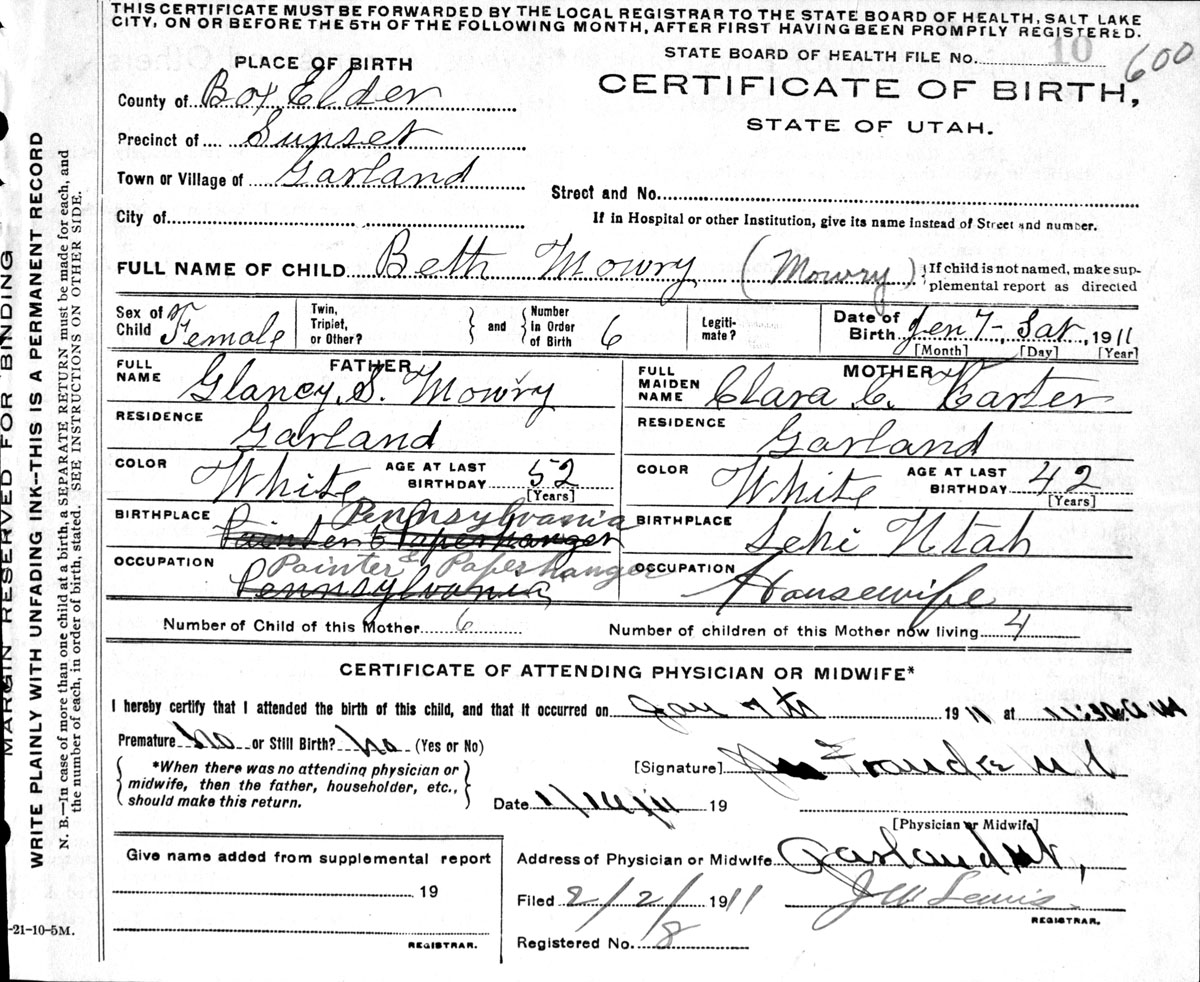 THIS CERTIFICATE MUST BE FORWARDED BY THE LOCAL REGISTRAR TO THE STATE BOARD OF HEALTH, SALT LAKE
CITY, ON OR BEFORE THE 5TH OF THE FOLLOWING MONTH, AFTER FIRST HAVING BEEN PROMPTLY REGISTERED.
STATE BOARD OF HEALTH FILE No. 10 600
PLACE OF BIRTH
CERTIFICATE OF BIRTH,
STATE OF UTAH.
County of Box Elder
Precinct of Sunset
Town or Village of Garland
Street and No.
City of
If in Hospital or other Institution, give its name instead of Street and number.
FULL NAME OF CHILD Beth Mowry (Mowry) If child is not named, make sup-
plemental report as directed
Sex of Child Female
Twin, Triplet, or Other?
and
Number in Order of Birth 6
Legiti-mate?
Date of Birth Jen 7, Sat, 1911
[Month] [Day] [Year]
FATHER
FULL NAME Glancy S. Mowry
MOTHER
FULL MAIDEN NAME Clara C. Karter
RESIDENCE Garland
RESIDENCE Garland
COLOR White AGE AT LAST BIRTHDAY 52 [Years]
COLOR White AGE AT LAST BIRTHDAY 42 [Years]
BIRTHPLACE Pennsylvania
Painter & Paperhanger
BIRTHPLACE Lehi Utah
OCCUPATION Painter & Paperhanger
Pennsylvania
OCCUPATION Housewife
Number of Child of this Mother 6
Number of children of this Mother now living 4
CERTIFICATE OF ATTENDING PHYSICIAN OR MIDWIFE*
I hereby certify that I attended the birth of this child, and that it occurred on Jan 7th 1911 at 11:30 A M
Premature No or Still Birth? No (Yes or No)
*When there was no attending physician or
midwife, then the father, householder, etc.,
should make this return.
[Signature] Francke M.D.
Date 19
[Physician or Midwife]
Give name added from supplemental report
19
REGISTRAR.
Address of Physician or Midwife Garland Ut,
Filed 2/2/ 1911 J W Lewis
REGISTRAR.
Registered No. 8
-21-10-5M.
MARGIN RESERVED FOR BINDING
WRITE PLAINLY WITH UNFADING INK--THIS IS A PERMANENT RECORD
N. B.—In case of more than one child at a birth, a SEPARATE RETURN must be made for each, and
the number of each, in order of birth, stated. SEE INSTRUCTIONS ON OTHER SIDE.